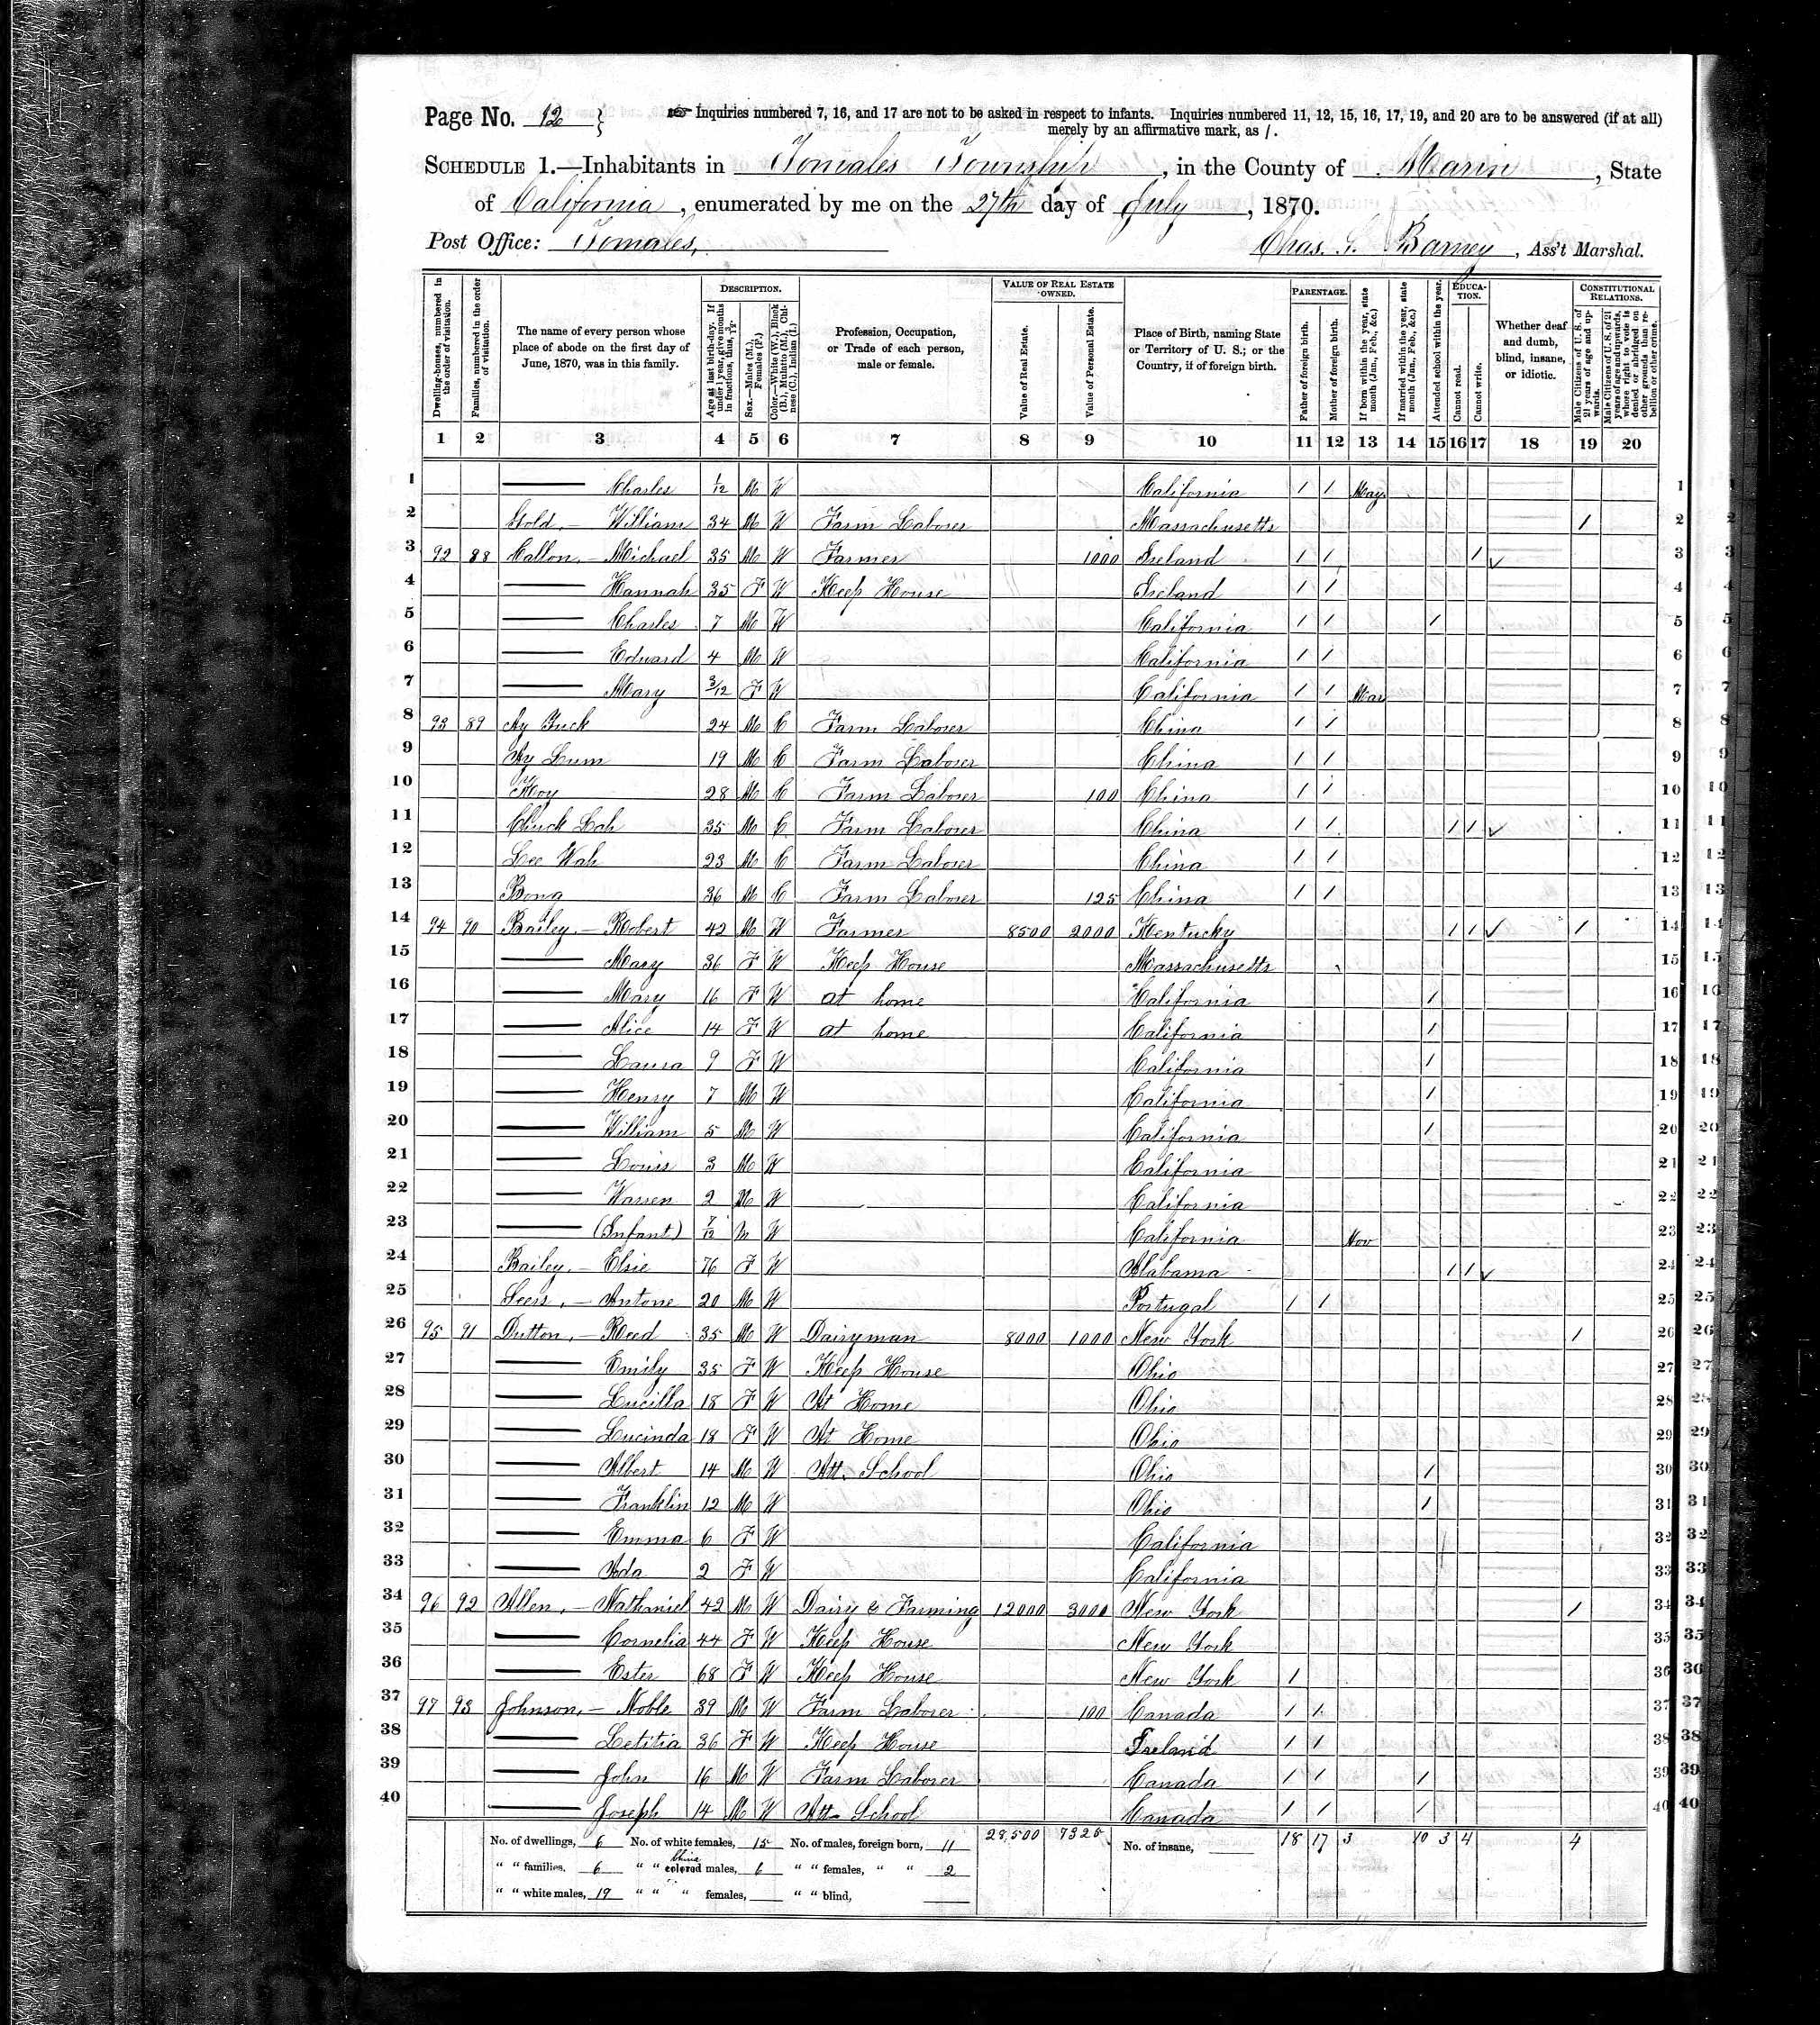 Page No. 12
Inquiries numbered 7, 16, and 17 are not to be asked in respect to infants. Inquiries numbered 11, 12, 15, 16, 17, 19, and 20 are to be answered (if at all)
merely by an affirmative mark, as /.
SCHEDULE 1.—Inhabitants in Tomales Township, in the County of Marin, State
of California, enumerated by me on the 27th day of July, 1870.
Post Office: Tomales, Chas. S. Barney, Ass't Marshal.
Dwelling-houses, numbered in the order of visitation.
Families, numbered in the order of visitation.
The name of every person whose place of abode on the first day of June, 1870, was in this family.
DESCRIPTION.
Age at last birth-day. If under 1 year, give months in fractions, thus, 3/12.
Sex.—Males (M.), Females (F.)
Color.—White (W.), Black (B.), Mulatto (M.), Chinese (C.), Indian (I.)
Profession, Occupation, or Trade of each person, male or female.
VALUE OF REAL ESTATE OWNED.
Value of Real Estate.
Value of Personal Estate.
Place of Birth, naming State or Territory of U. S.; or the Country, if of foreign birth.
PARENTAGE.
Father of foreign birth.
Mother of foreign birth.
If born within the year, state month (Jan., Feb., &c.)
If married within the year, state month (Jan., Feb., &c.)
Attended school within the year.
EDUCATION.
Cannot read.
Cannot write.
Whether deaf and dumb, blind, insane, or idiotic.
CONSTITUTIONAL RELATIONS.
Male Citizens of U. S. of 21 years of age and upwards.
Male Citizens of U. S. of 21 years of age and upwards, whose right to vote is denied or abridged on other grounds than rebellion or other crime.
1 2 3 4 5 6 7 8 9 10 11 12 13 14 15 16 17 18 19 20
1 — Charles 1/12 M W California / / May 1
2 Gold, — William 34 M W Farm Laborer Massachusetts / 2
3 92 88 Callon, — Michael 35 M W Farmer 1000 Ireland / / / 3
4 — Hannah 35 F W Keep House Ireland / / 4
5 — Charles 7 M W California / / / 5
6 — Edward 4 M W California / / 6
7 — Mary 3/12 F W California / / Mar 7
8 93 89 Ay Fuck 24 M C Farm Laborer China / / 8
9 Ay Lum 19 M C Farm Laborer China / / 9
10 Moy 28 M C Farm Laborer 100 China / / 10
11 Chuck Lah 35 M C Farm Laborer China / / / / 11
12 Lee Wah 23 M C Farm Laborer China / / 12
13 Bong 36 M C Farm Laborer 125 China / / 13
14 94 90 Bailey, — Robert 42 M W Farmer 8500 2000 Kentucky / / / 14
15 — Mary 36 F W Keep House Massachusetts 15
16 — Mary 16 F W at home California / 16
17 — Alice 14 F W at home California / 17
18 — Laura 9 F W California / 18
19 — Henry 7 M W California / 19
20 — William 5 M W California / 20
21 — Louis 3 M W California 21
22 — Warren 2 M W California 22
23 — (Infant) 7/12 M W California Nov 23
24 Bailey, — Elsie 76 F W Alabama / / 24
25 — Antone 20 M W Portugal / / 25
26 95 91 Dutton, — Reed 35 M W Dairyman 8000 1000 New York / 26
27 — Emily 35 F W Keep House Ohio 27
28 — Lucilla 18 F W At Home Ohio 28
29 — Lucinda 18 F W At Home Ohio 29
30 — Albert 14 M W Att. School Ohio / 30
31 — Franklin 12 M W Ohio / 31
32 — Emma 6 F W California 32
33 — Ada 2 F W California 33
34 96 92 Allen, — Nathaniel 42 M W Dairy & Farming 12000 3000 New York / 34
35 — Cornelia 44 F W Keep House New York 35
36 — Ester 68 F W Keep House New York / 36
37 97 93 Johnson, — Noble 39 M W Farm Laborer 100 Canada / / 37
38 — Letitia 36 F W Keep House Ireland / / 38
39 — John 16 M W Farm Laborer Canada / / / 39
40 — Joseph 14 M W Att School Canada / / / 40
No. of dwellings, 6 No. of white females, 15 No. of males, foreign born, 11 28,500 7325 No. of insane, 18 17 3 10 3 4 4
" " families, 6 " " colored males, 6 " " females, " " 2
China
" " white males, 19 " " " females, " " blind,